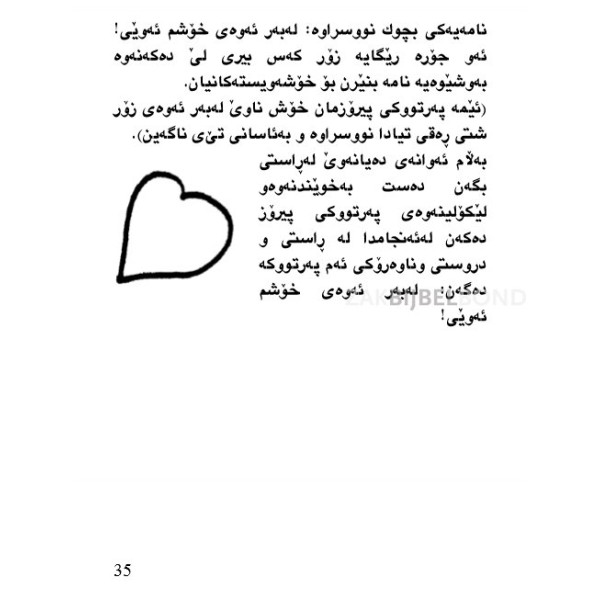 نامەیەکی بچوك نووسراوە: لەبەر ئەوەی خۆشم ئەوێی!
ئەو جۆرە رێگایە زۆر کەس بیری لێ دەکەنەوە
بەوشێوەیە نامە بنێرن بۆ خۆشەویستەکانیان.
(ئێمە پەرتووکی پیرۆزمان خۆش ناوێ لەبەر ئەوەی زۆر
شتی ڕەقی تیادا نووسراوە و بەئاسانی تێی ناگەین).
بەڵام ئەوانەی دەیانەوێ لەڕاستی
بگەن دەست بەخوێندنەوەو
لێکۆلینەوەی پەرتووکی پیرۆز
دەکەن لەئەنجامدا لە ڕاستی و
دروستی وناوەرۆکی ئەم پەرتووکە
دەگەن: لەبەر ئەوەی خۆشم
ئەوێی!
ZAKBIJBELBOND
35